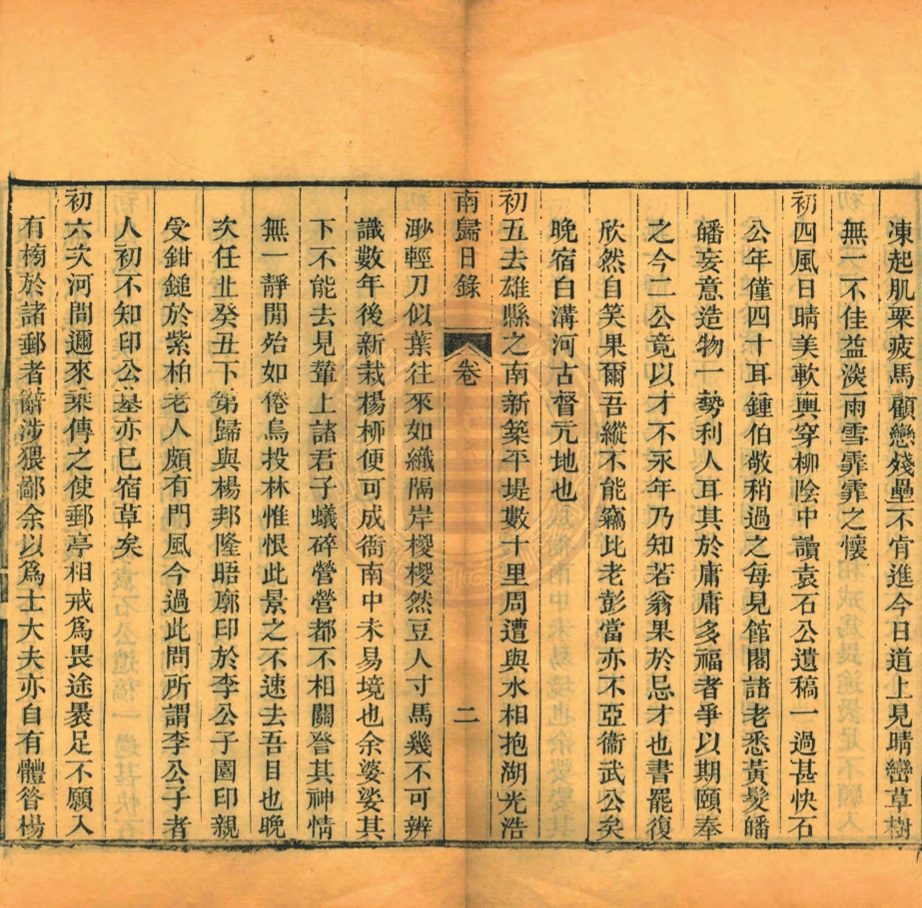 凍起肌栗疲馬顧戀殘壘不肯進今日道上見晴巒草樹
無一不佳益淡雨雪霏霏之懷
初四風日晴美軟輿穿柳陰中讀袁石公遺稿一過甚快石
公年僅四十耳鍾伯敬稍過之每見館閣諸老悉黃髮皤
皤妄意造物一勢利人耳其於庸庸多福者爭以期頤奉
之今二公竟以才不永年乃知若翁果於忌才也書罷復
欣然自笑果爾吾縱不能竊比老彭當亦不亞衞武公矣
晩宿白溝河古督亢地也
初五去雄縣之南新築平堤數十里周遭與水相抱湖光浩
南歸日錄 卷 二
渺輕刀似葉往來如織隔岸椶椶然豆人寸馬幾不可辨
識數年後新栽楊柳便可成衙南中未易境也余婆娑其
下不能去見輦上諸君子蟻碎營營都不相關覺其神情
無一靜閒殆如倦鳥投林惟恨此景之不速去吾目也晚
次任丘癸丑下第歸與楊邦隆晤廓印於李公子園印親
受鉗鎚於紫柏老人頗有門風今過此問所謂李公子者
人初不知印公墓亦已宿草矣
初六次河間邇來乘傳之使郵亭相戒爲畏途裹足不願入
有榜於諸郵者辭涉猥鄙余以爲士大夫亦自有體咎楊